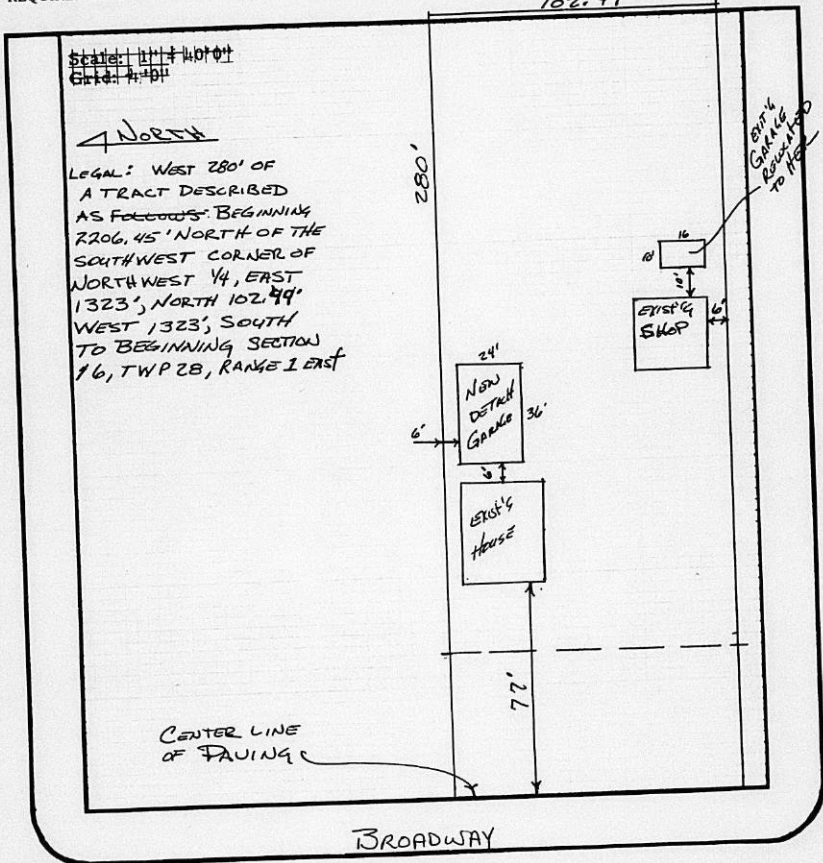 102.49
Scale: 1" = 40'0"
Grid: 4'0"
NORTH
LEGAL: WEST 280' OF
A TRACT DESCRIBED
AS FOLLOWS: BEGINNING
2206.45' NORTH OF THE
SOUTHWEST CORNER OF
NORTHWEST 1/4, EAST
1323', NORTH 102.49'
WEST 1323', SOUTH
TO BEGINNING SECTION
16, TWP 28, RANGE 1 EAST
280'
EXIT'G
GARAGE
RELOCATED
TO HERE
16
12'
10'
EXIST'G
SHOP
6'
24'
NEW
DETACH
GARAGE
36'
6'
6'
EXIST'G
HOUSE
77'
CENTER LINE
OF PAVING
BROADWAY